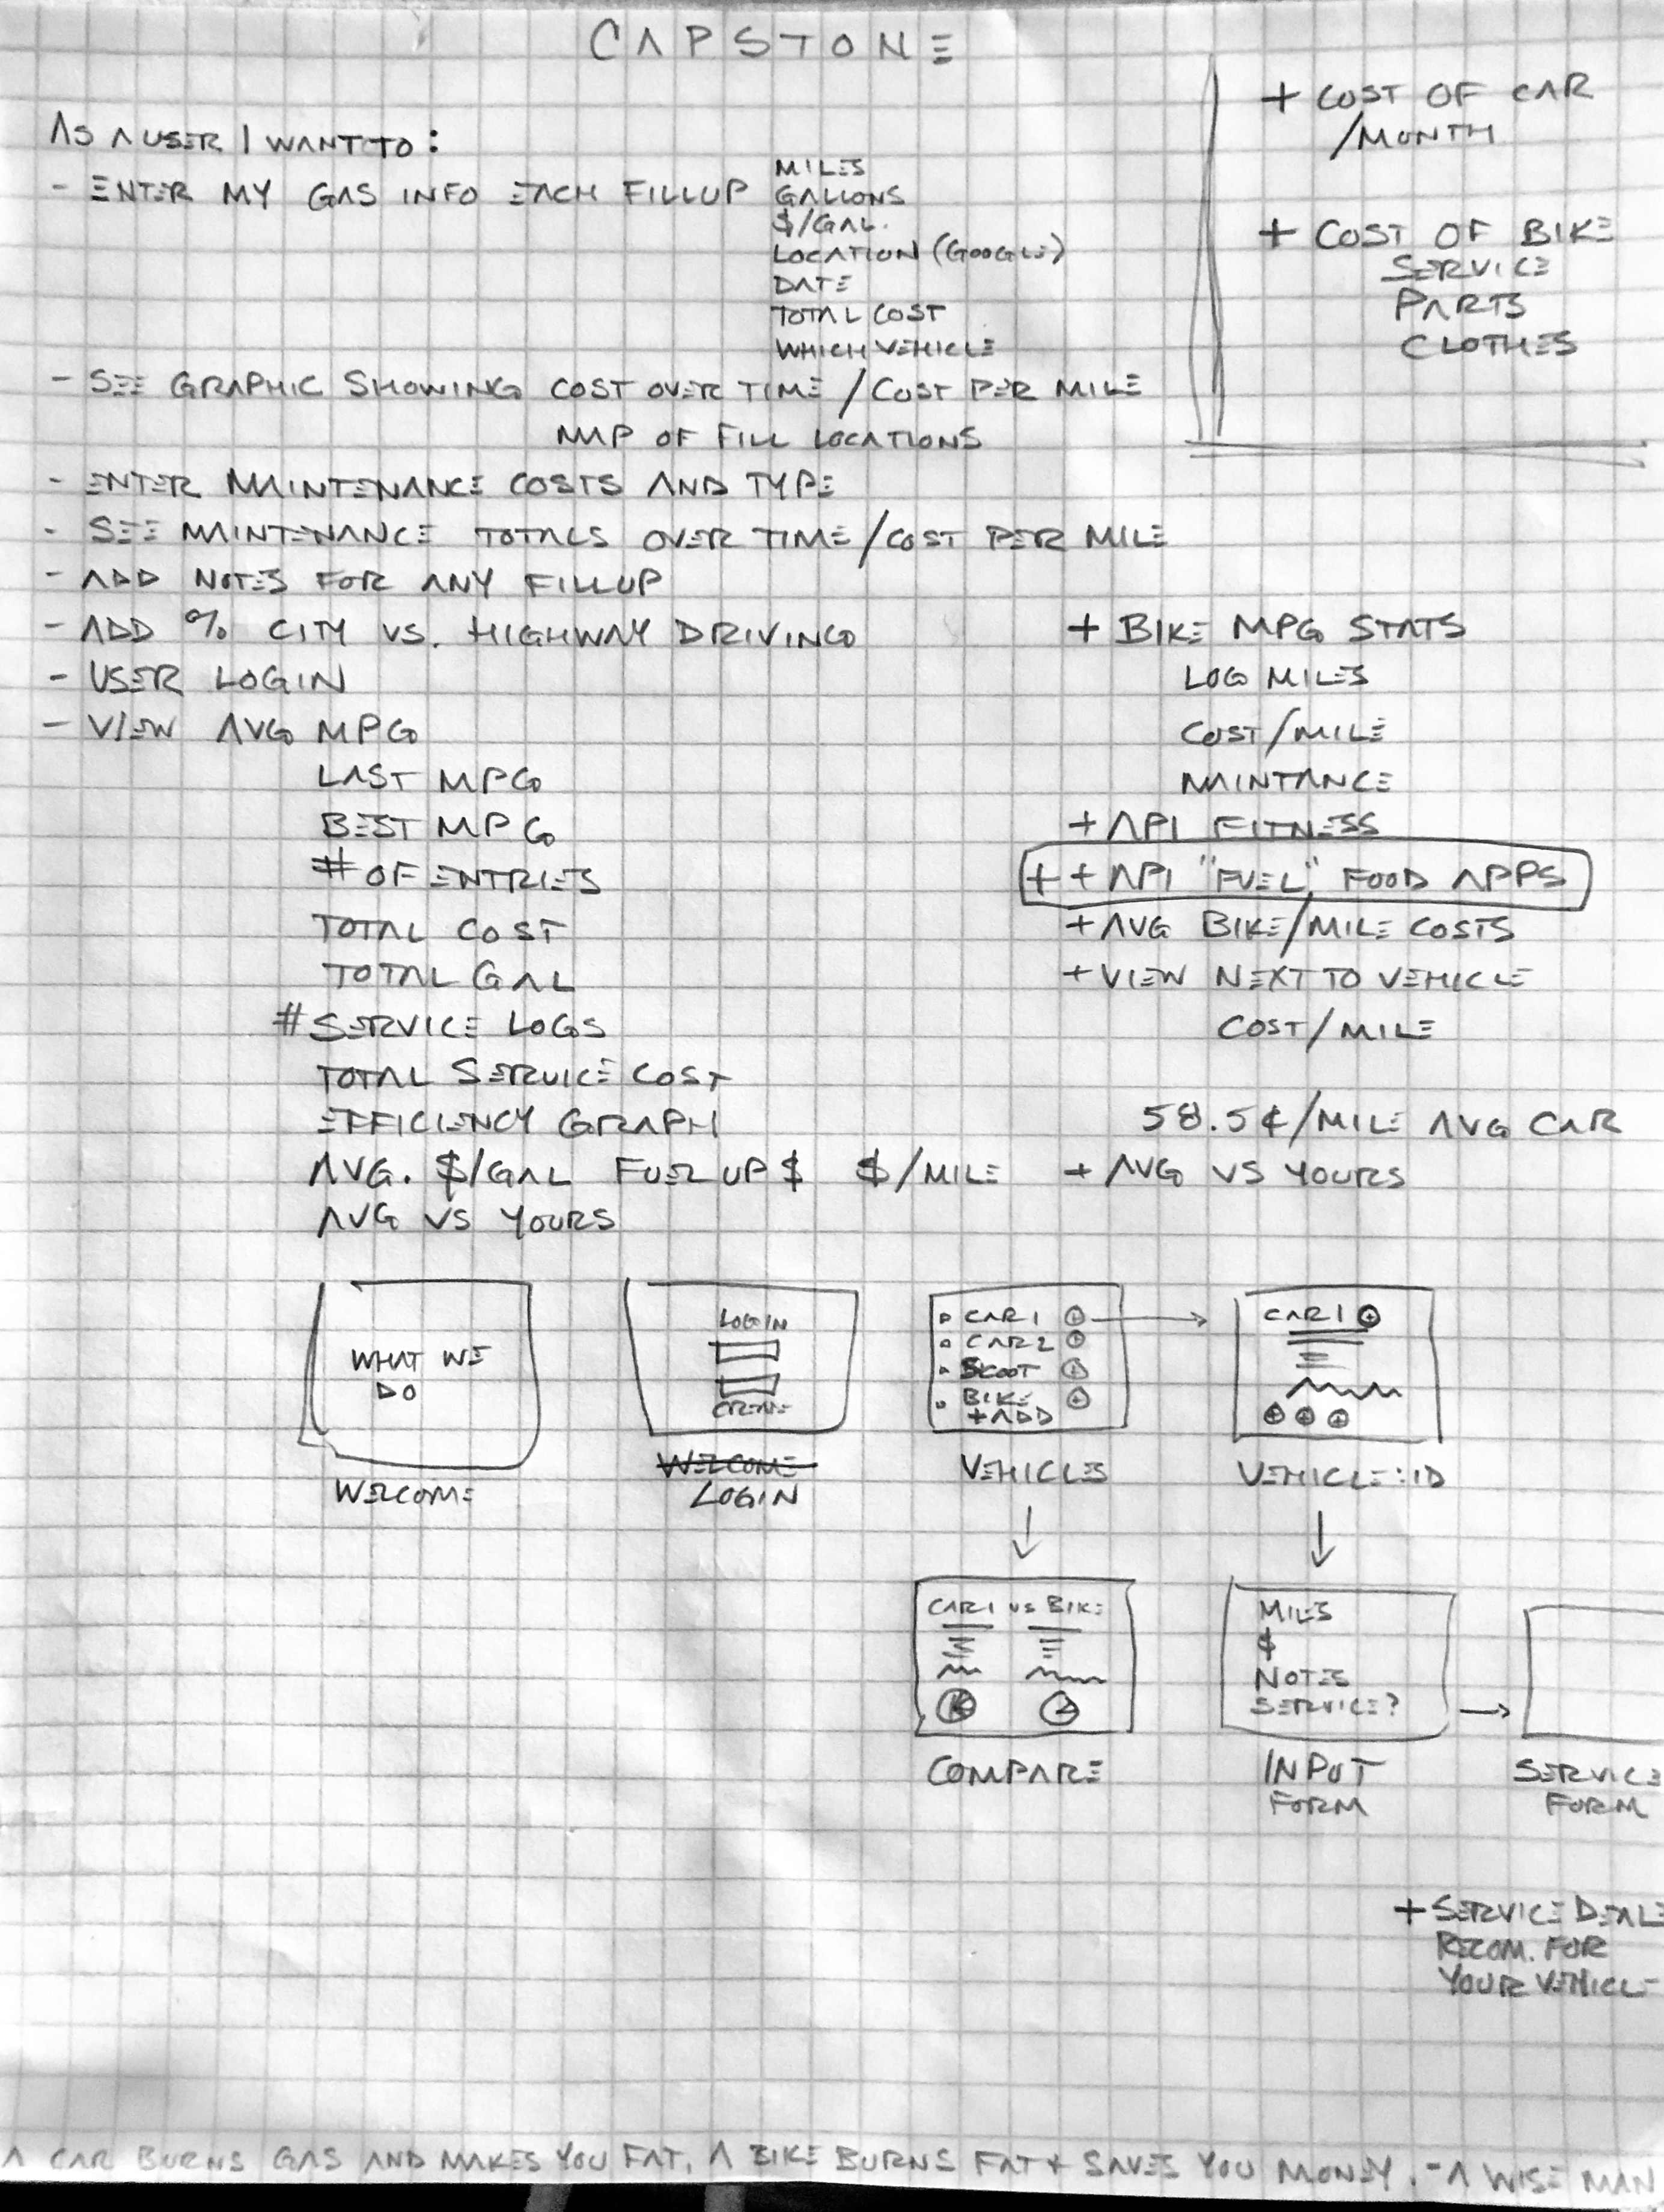 CAPSTONE
AS A USER I WANT TO:
- ENTER MY GAS INFO EACH FILLUP
MILES
GALLONS
$/GAL.
LOCATION (GOOGLE)
DATE
TOTAL COST
WHICH VEHICLE
- SEE GRAPHIC SHOWING COST OVER TIME / COST PER MILE
MAP OF FILL LOCATIONS
- ENTER MAINTENANCE COSTS AND TYPE
- SEE MAINTENANCE TOTALS OVER TIME / COST PER MILE
- ADD NOTES FOR ANY FILLUP
- ADD % CITY VS. HIGHWAY DRIVING
- USER LOGIN
- VIEW AVG MPG
LAST MPG
BEST MPG
# OF ENTRIES
TOTAL COST
TOTAL GAL
# SERVICE LOGS
TOTAL SERVICE COST
EFFICIENCY GRAPH
AVG. $/GAL FUEL UP $ $/MILE
AVG VS YOURS
+ COST OF CAR
/MONTH
+ COST OF BIKE
SERVICE
PARTS
CLOTHES
+ BIKE MPG STATS
LOG MILES
COST/MILE
MAINTANCE
+ API FITNESS
+ + API "FUEL" FOOD APPS
+ AVG BIKE/MILE COSTS
+ VIEW NEXT TO VEHICLE
COST/MILE
58.5¢/MILE AVG CAR
+ AVG VS YOURS
WHAT WE
DO
WELCOME
LOGIN
CREATE
WELCOME
LOGIN
CAR 1
CAR 2
SCOOT
BIKE
+ ADD
VEHICLES
CAR 1
VEHICLE:ID
CAR 1 VS BIKE
COMPARE
MILES
$
NOTES
SERVICE?
INPUT
FORM
SERVICE
FORM
+ SERVICE DEALE
RECOM. FOR
YOUR VEHICLE
A CAR BURNS GAS AND MAKES YOU FAT, A BIKE BURNS FAT + SAVES YOU MONEY. - A WISE MAN